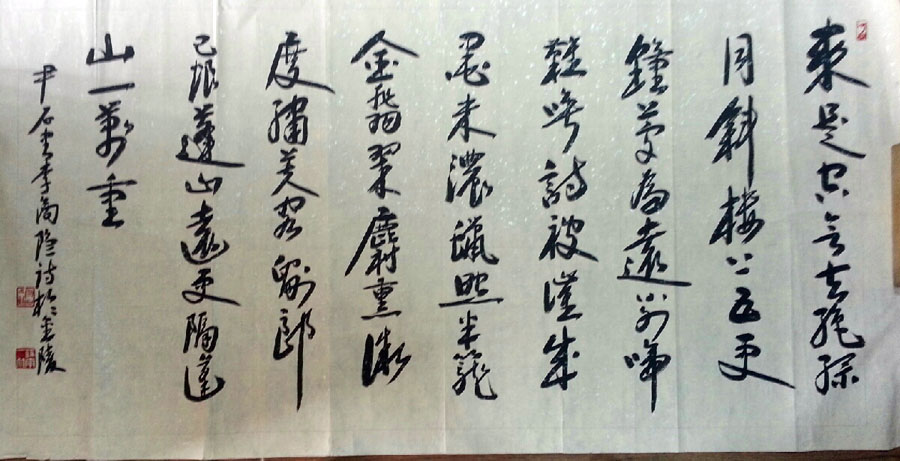 來是空言去絕踪
月斜楼上五更
鐘夢為遠別啼
難呼詩被催成
墨未濃蠟照半籠
金翡翠麝熏微
度繡芙容劉郎
已恨蓬山遠更隔蓬
山一萬重
尹石書李商隐詩於金陵